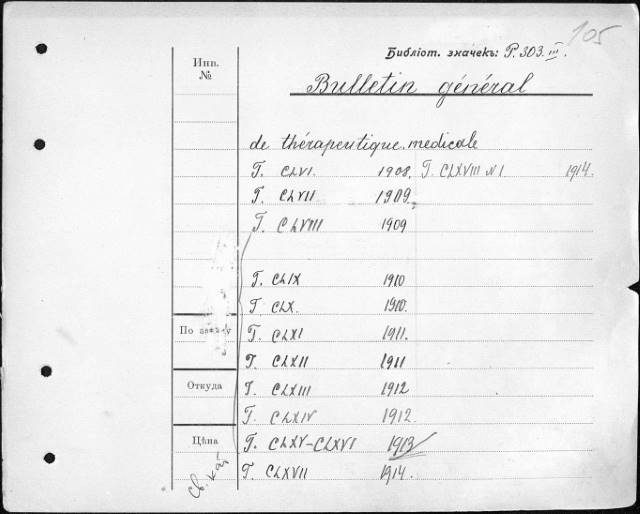 105
Библіот. значекъ: P. 303. III.
Инв.
№
Bulletin général
de thérapeutique medicale
T. CLVI. 1908. T. CLXVIII N I 1914.
T. CLVII 1909.
T. CLVIII 1909
T. CLIX 1910
T. CLX. 1910.
По
T. CLXI 1911.
T. CLXII 1911
Откуда
T. CLXIII 1912
T. CLXIV 1912.
Цѣна
T. CLXV-CLXVI 1913
T. CLXVII 1914.
Св. кат